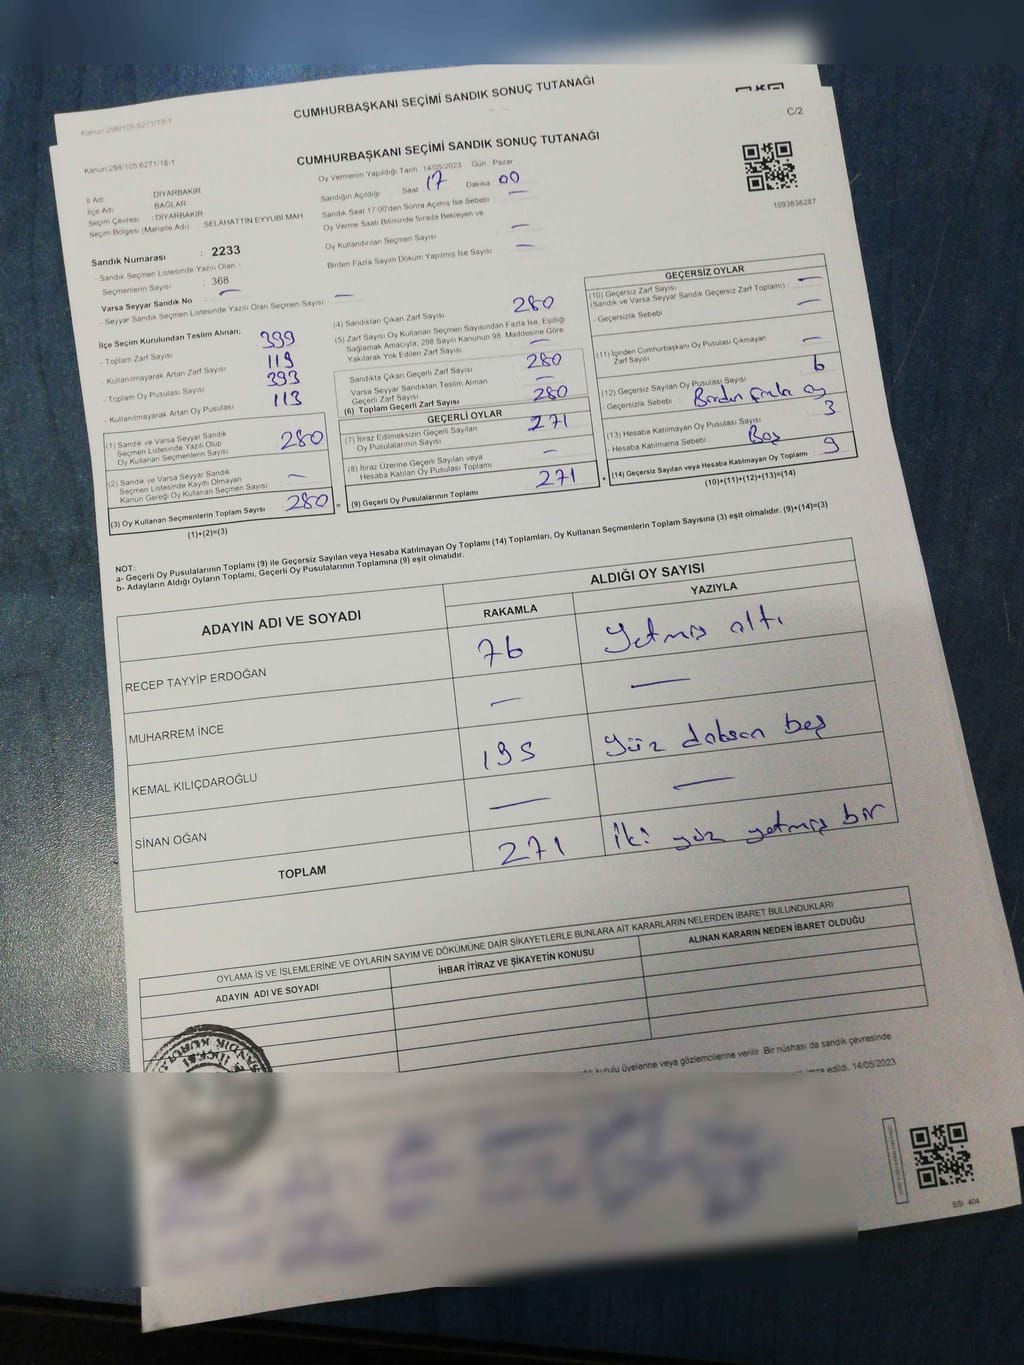 Kanun:298/105:6271/18-1
CUMHURBAŞKANI SEÇİMİ SANDIK SONUÇ TUTANAĞI
C/2
Kanun:298/105:6271/18-1
CUMHURBAŞKANI SEÇİMİ SANDIK SONUÇ TUTANAĞI
1093838287
İl Adı DİYARBAKIR
İlçe Adı BAĞLAR
Seçim Çevresi : DİYARBAKIR
Seçim Bölgesi (Mahalle Adı) : SELAHATTİN EYYUBİ MAH
Sandık Numarası : 2233
- Sandık Seçmen Listesinde Yazılı Olan
Seçmenlerin Sayısı : 368
Varsa Seyyar Sandık No : —
- Seyyar Sandık Seçmen Listesinde Yazılı Olan Seçmen Sayısı: —
Oy Vermenin Yapıldığı Tarih 14/05/2023 Gün Pazar
Sandığın Açıldığı Saat 17 Dakika 00
Sandık Saat 17:00'den Sonra Açılmış İse Sebebi —
Oy Verme Saati Bitiminde Sırada Bekleyen ve
Oy Kullandırılan Seçmen Sayısı —
Birden Fazla Sayım Döküm Yapılmış İse Sayısı —
İlçe Seçim Kurulundan Teslim Alınan;
- Toplam Zarf Sayısı 399
- Kullanılmayarak Artan Zarf Sayısı 119
- Toplam Oy Pusulası Sayısı 393
- Kullanılmayarak Artan Oy Pusulası 113
(1) Sandık ve Varsa Seyyar Sandık
Seçmen Listesinde Yazılı Olup
Oy Kullanan Seçmenlerin Sayısı 280
(2) Sandık ve Varsa Seyyar Sandık
Seçmen Listesinde Kayıtlı Olmayan
Kanun Gereği Oy Kullanan Seçmen Sayısı —
(3) Oy Kullanan Seçmenlerin Toplam Sayısı 280
(1)+(2)=(3)
(4) Sandıktan Çıkan Zarf Sayısı 280
(5) Zarf Sayısı Oy Kullanan Seçmen Sayısından Fazla İse, Eşitliği
Sağlamak Amacıyla, 298 Sayılı Kanunun 98. Maddesine Göre
Yakılarak Yok Edilen Zarf Sayısı —
Sandıkta Çıkan Geçerli Zarf Sayısı 280
Varsa Seyyar Sandıktan Teslim Alınan
Geçerli Zarf Sayısı —
(6) Toplam Geçerli Zarf Sayısı 280
GEÇERLİ OYLAR
(7) İtiraz Edilmeksizin Geçerli Sayılan
Oy Pusulalarının Sayısı 271
(8) İtiraz Üzerine Geçerli Sayılan veya
Hesaba Katılan Oy Pusulası Toplamı —
= (9) Geçerli Oy Pusulalarının Toplamı 271
GEÇERSİZ OYLAR
(10) Geçersiz Zarf Sayısı —
(Sandık ve Varsa Seyyar Sandık Geçersiz Zarf Toplamı) :
- Geçersizlik Sebebi : —
(11) İçinden Cumhurbaşkanı Oy Pusulası Çıkmayan
Zarf Sayısı —
(12) Geçersiz Sayılan Oy Pusulası Sayısı 6
- Geçersizlik Sebebi : Birden fazla oy
(13) Hesaba Katılmayan Oy Pusulası Sayısı 3
- Hesaba Katılmama Sebebi : Boş
+ (14) Geçersiz Sayılan veya Hesaba Katılmayan Oy Toplamı 9
(10)+(11)+(12)+(13)=(14)
NOT:
a- Geçerli Oy Pusulalarının Toplamı (9) ile Geçersiz Sayılan veya Hesaba Katılmayan Oy Toplamı (14) Toplamları, Oy Kullanan Seçmenlerin Toplam Sayısına (3) eşit olmalıdır. (9)+(14)=(3)
b- Adayların Aldığı Oyların Toplamı, Geçerli Oy Pusulalarının Toplamına (9) eşit olmalıdır.
ADAYIN ADI VE SOYADI
ALDIĞI OY SAYISI
RAKAMLA YAZIYLA
RECEP TAYYİP ERDOĞAN 76 Yetmiş altı
MUHARREM İNCE — —
KEMAL KILIÇDAROĞLU 195 Yüz doksan beş
SİNAN OĞAN — —
TOPLAM 271 İki yüz yetmiş bir
OYLAMA İŞ VE İŞLEMLERİNE VE OYLARIN SAYIM VE DÖKÜMÜNE DAİR ŞİKAYETLERLE BUNLARA AİT KARARLARIN NELERDEN İBARET BULUNDUKLARI
ADAYIN ADI VE SOYADI İHBAR İTİRAZ VE ŞİKAYETİN KONUSU ALINAN KARARIN NEDEN İBARET OLDUĞU
kurulu üyelerine veya gözlemcilerine verilir. Bir nüshası da sandık çevresinde
imza edildi. 14/05/2023
SANDIK KURULU
SSI 404